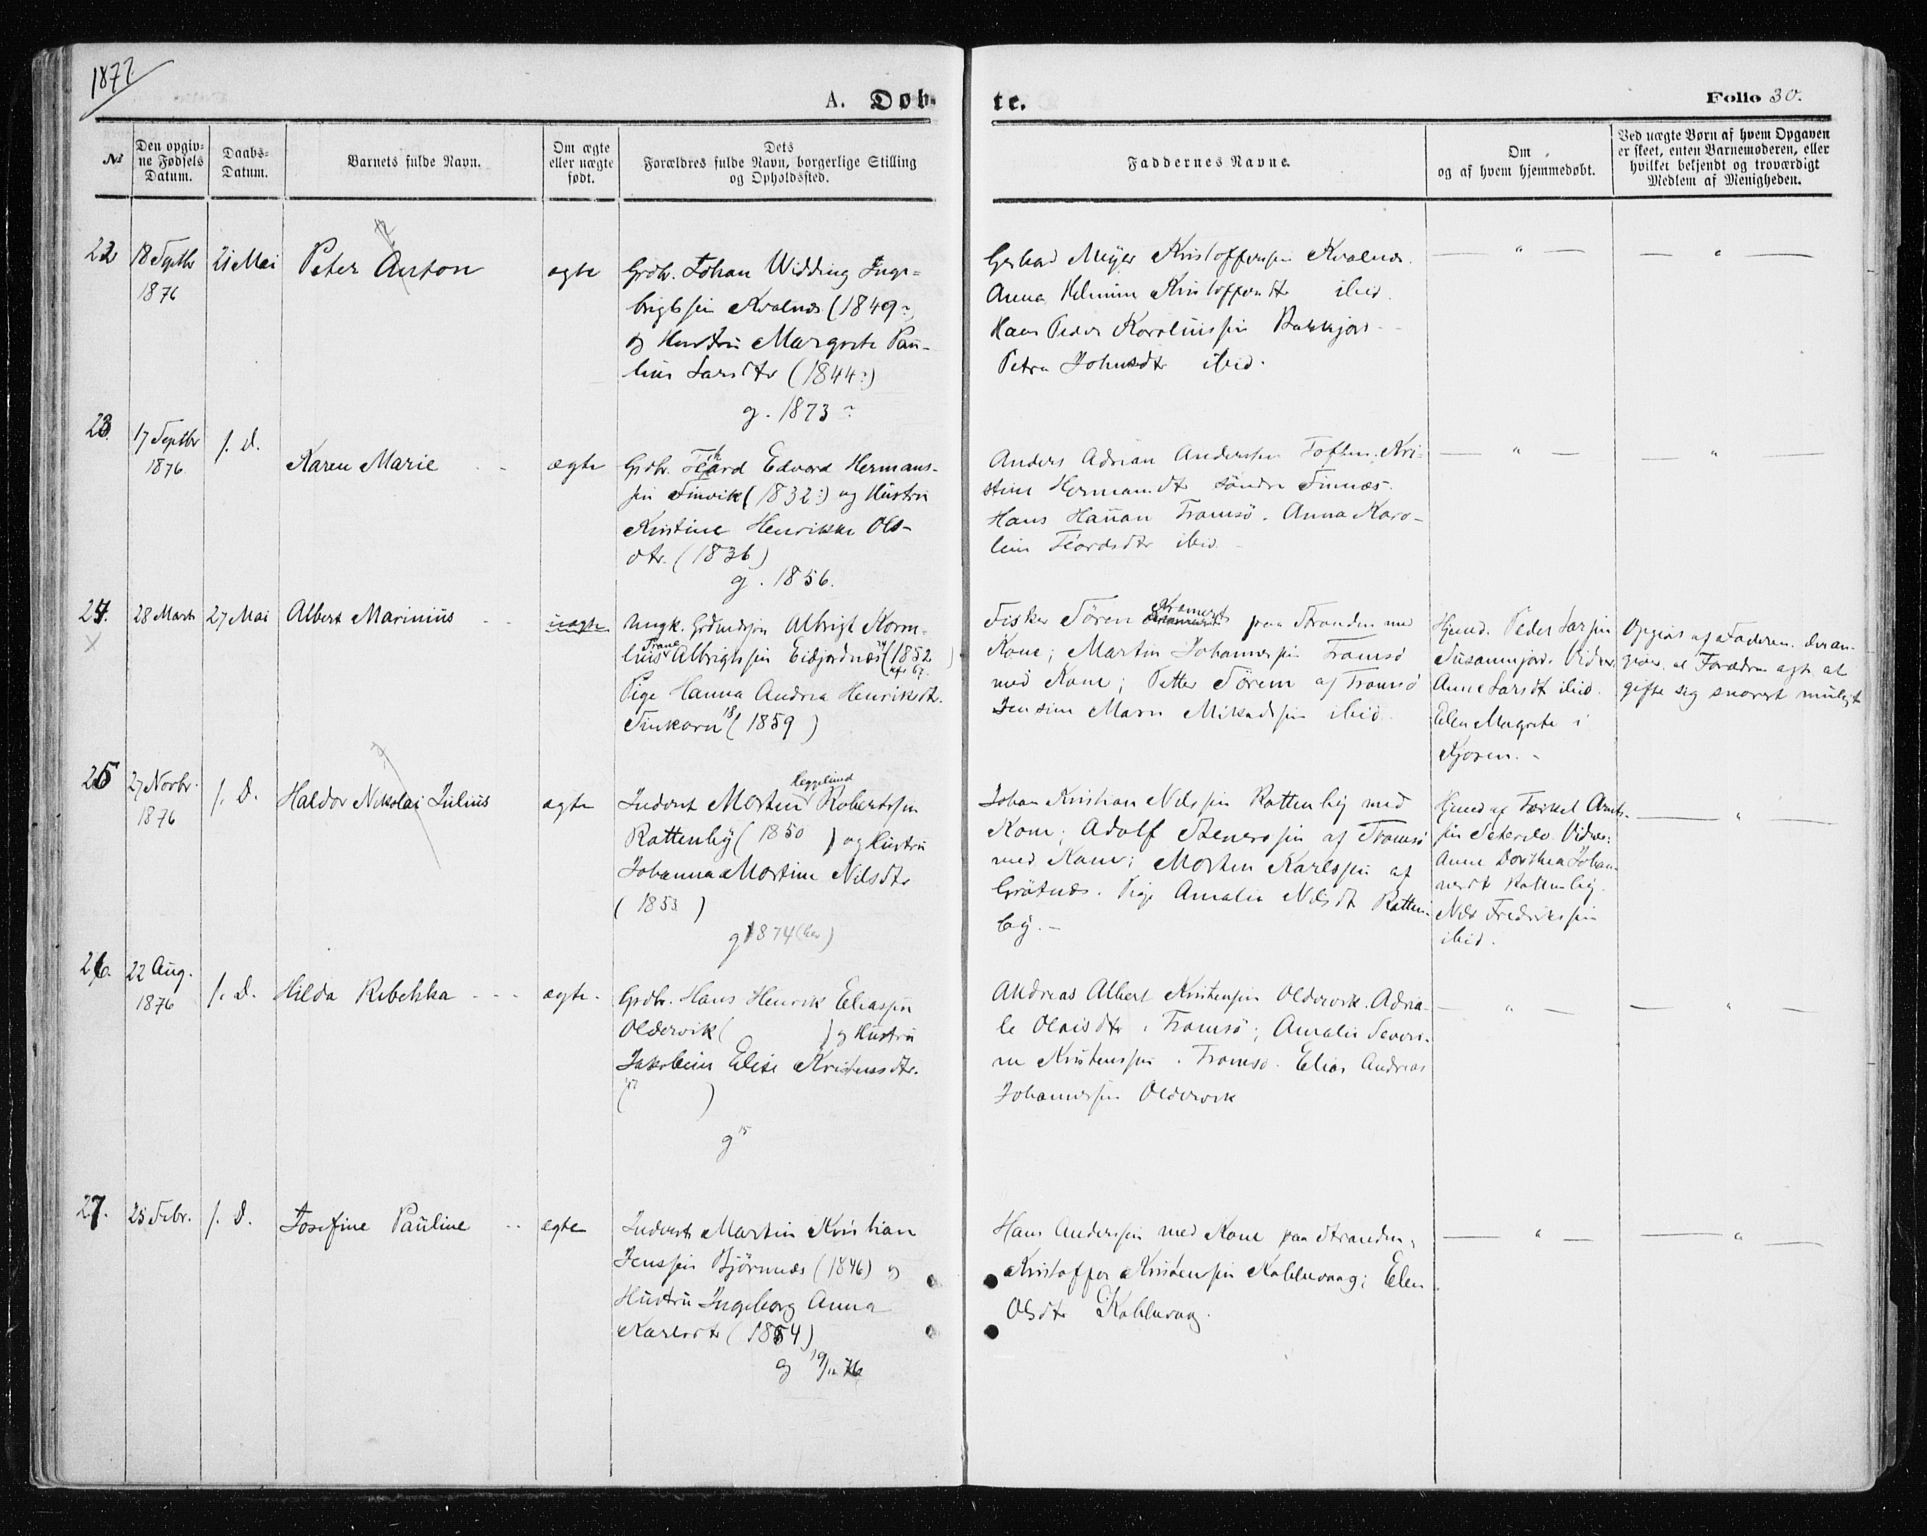 1877
A. Døb-
te.
Folio 30.
No
Den opgiv-
ne Fødsels
Datum.
Daabs-
Datum.
Barnets fulde Navn.
Om ægte
eller uægte
født.
Dets
Forældres fulde Navn, borgerlige Stilling
og Opholdssted.
Faddernes Navne.
Om
og af hvem hjemmedøbt.
Ved uægte Børn af hvem Opgaven
er skeet, enten Barnemoderen, eller
hvilket bekjendt og troværdigt
Medlem af Menigheden.
22
18 Septbr
1876
21 Mai
Peter Anton
ægte
Grdbr. Johan Widding Inge-
brigtsen Kvalnes (1849?)
og Hustru Margrete Pau-
line Larsdtr (1844?)
g. 1873?
Gerhard Meyer Kristoffersen Kvalnes.
Anna Kristoffersdtr ibid.
Hans Peder Karoliussen
Petra Johnsdtr ibid.
23.
17 Septbr
1876
s. D.
Karen Marie
ægte
Grdbr. Edvard Hermans-
sen Finvik (1832?) og Hustru
Kristine Henrikke Ols-
dtr. (1836)
g. 1856.
Anders Adrian Anderssen Toften. Kri-
stine Hermansdtr Søndre Finnæs.
Hans Hansen Tromsø. Anna Karo-
line ibid.
24.
28 Marts
27 Mai
Albert Marinius
uægte
Ungk. Grdmdsøn Albrigt Korne-
lius Albrigtssen Eidjordnæs (1852
Pige Hanna Andrea Henriksdtr.
Finkorn (1859)
Fisker Sören Kramer paa Stranden med
Kone; Martin Johannessen Tromsø
med Kone; Petter Sörem af Tromsø
Jensine Marie ibid.
Hjmd. Peder Larssen
Vidner
Anne Larsdtr ibid.
Elen Margrete i
Kjosen.
Opgivet af Faderen, der an-
giver at Forældrene agte at
gifte sig snarest muligt
25
27 Novbr.
1876
s. D.
Haldor Nikolai Julius
ægte
Inderst Morten Heggelund Robertssen
Rottenby (1850) og Hustru
Johanna Martine Nilsdtr
(1853)
g 1874 (her)
Johan Kristian Nilssen Rottenby med
Kone; Adolf Stenerssen af Tromsø
med Kone; Morten Karlssen af
Grötnes. Pige Amalie Nilsdtr Rotten-
by.
Hjmd af Torkel Arnt-
sen Vidner:
Anne Dorthea Johan-
nesdtr Rottenby.
Nils Fredrikssen
ibid.
26.
22 Aug.
1876
s. D.
Hilda Rebekka
ægte.
Grdbr. Hans Henrik Eliassen
Oldervik ( ) og Hustru
Jakobine Elise Kristensdtr.
( )
g
Andreas Albert Kristensen Oldervik. Adria-
ne Olaisdtr i Tromsø; Amalie Severi-
ne Kristenssen i Tromsø. Elias Andreas
Johannessen Oldervik
27.
25 Febr.
s. D.
Josefine Pauline
ægte
Inderst Martin Kristian
Jenssen Bjørnnæs (1846) og
Hustru Ingeborg Anna
Karlsdtr (1854)
g 19/11 76
Hans Anderssen med Kone paa Stranden;
Kristoffer Kristensen Kobbevaag; Elen
Olsdtr Kobbevaag.